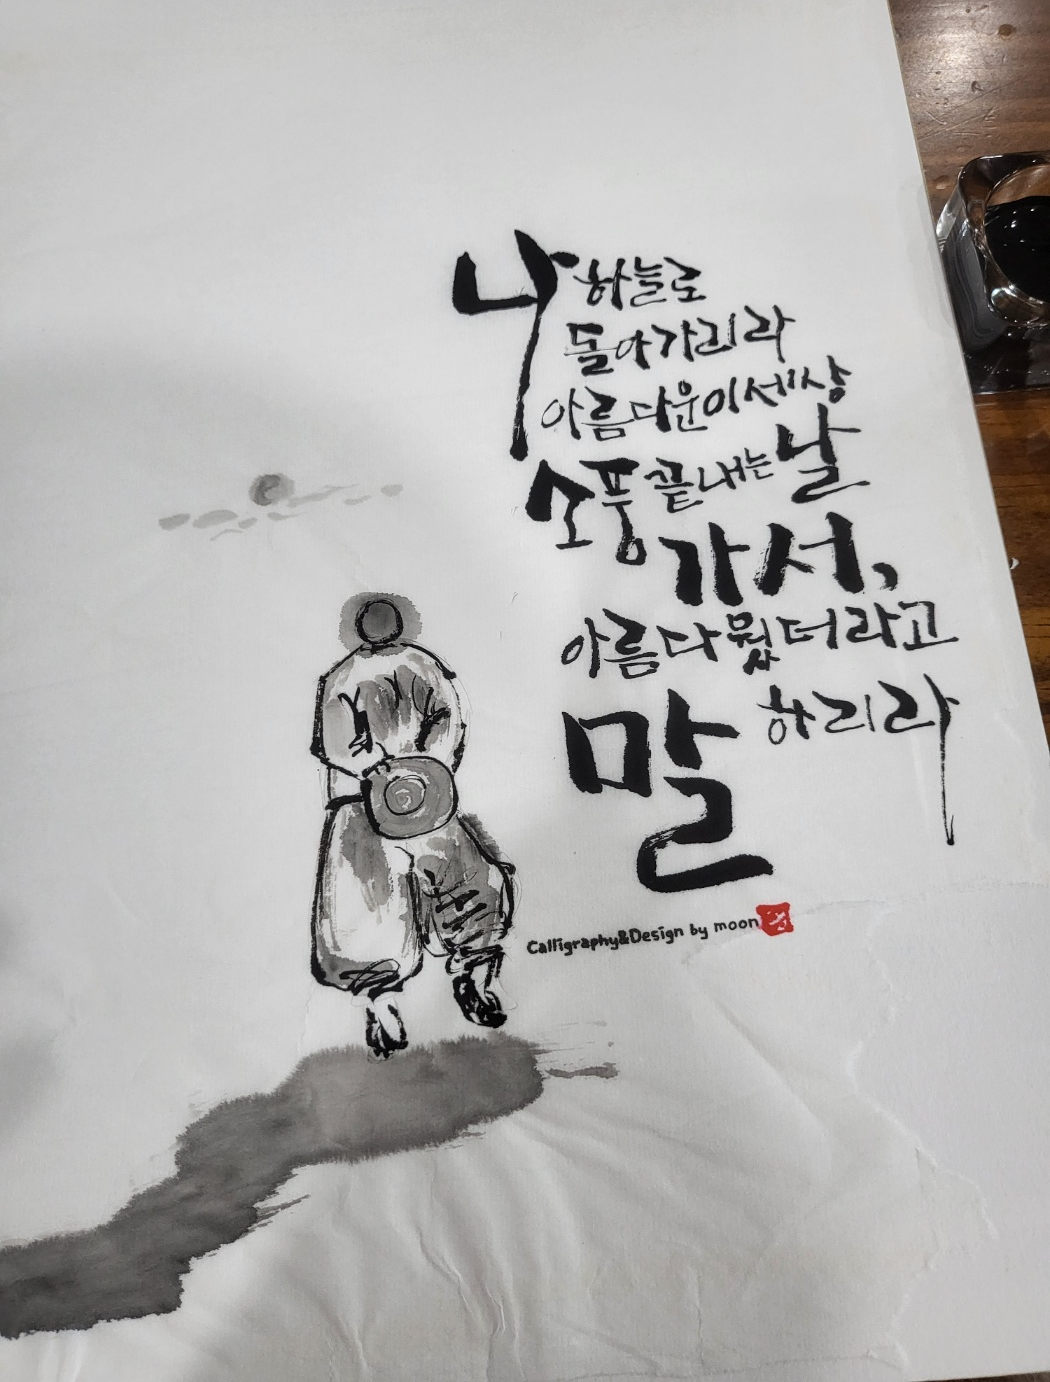 나 하늘로
돌아가리라
아름다운이세상
소풍 끝내는 날
가서,
아름다웠더라고
말 하리라
Calligraphy&Design by moon